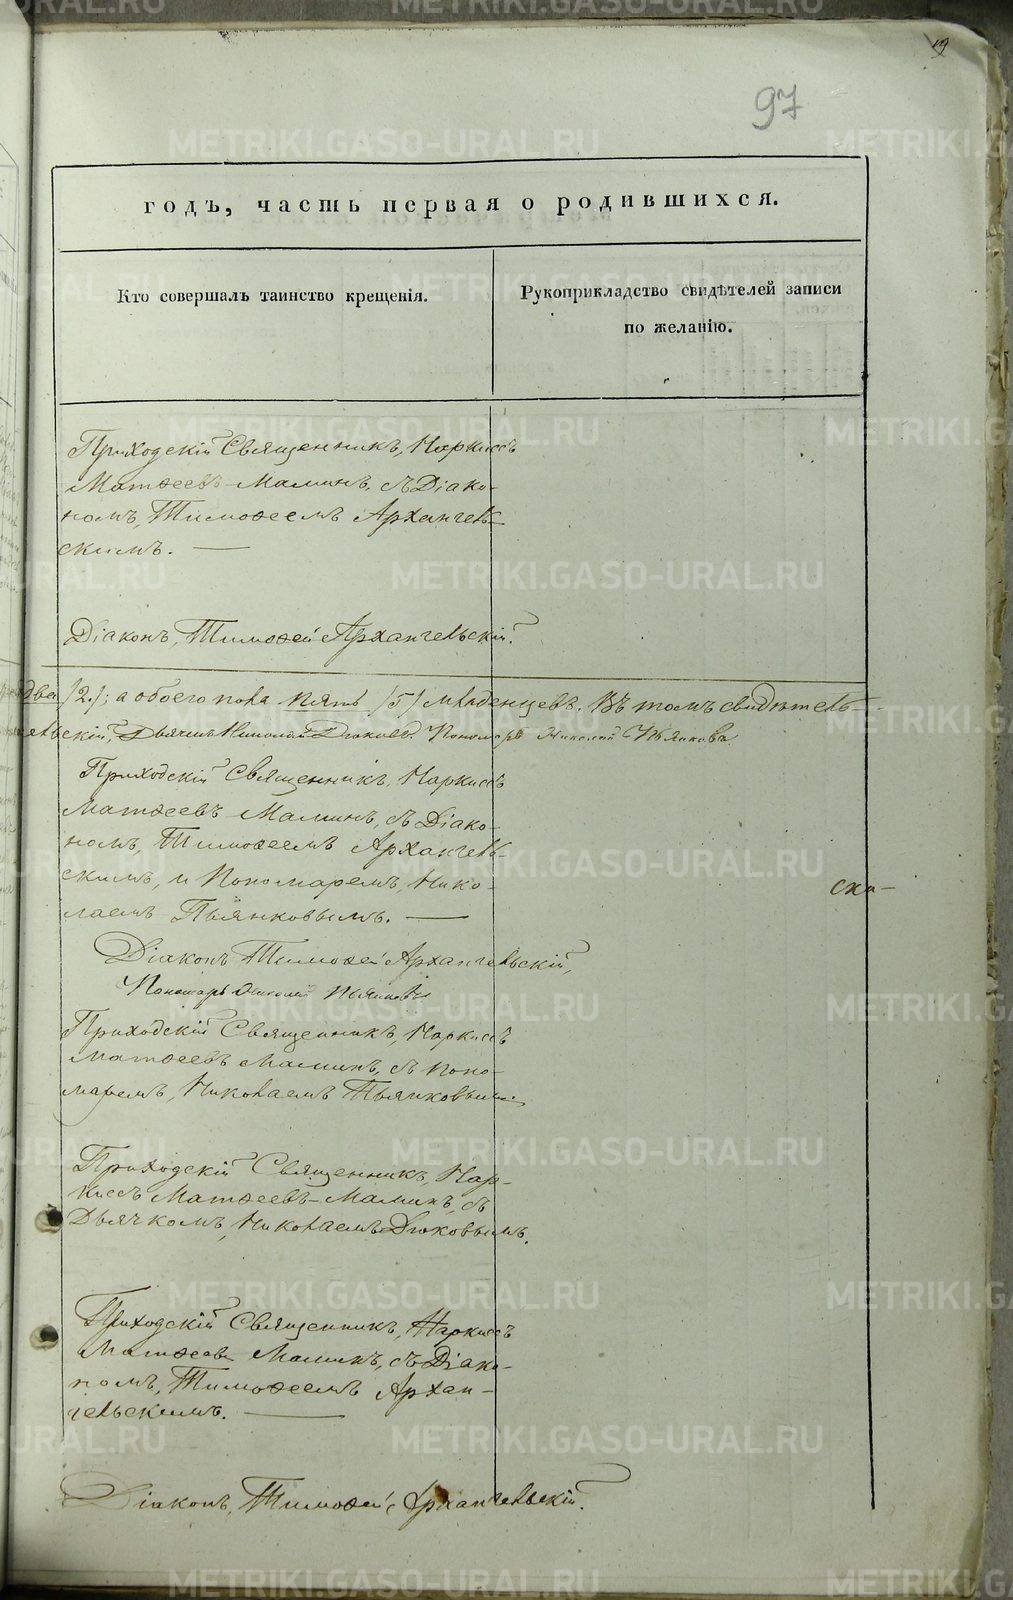 97
годъ, часть первая о родившихся.
Кто совершалъ таинство крещенія.
Рукоприкладство свидѣтелей записи
по желанію.
Приходскій Священникъ, Наркиссъ
Матѳеевъ Маминъ, съ Діако-
номъ, Тимоѳеемъ Архангель-
скимъ. —
Діаконъ, Тимоѳей Архангельскій.
два /2./; а обоего пола пять /5/ младенцевъ. Въ томъ свидѣтель-
ельскій, Дьячекъ Николай Дюковъ. Пономарь Николай Пьянковъ.
Приходскій Священникъ, Наркиссъ
Матѳеевъ Маминъ, съ Діако-
номъ, Тимоѳеемъ Архангель-
скимъ, и Пономаремъ, Нико-
лаемъ Пьянковымъ. —
ска-
Діаконъ Тимоѳей Архангельскій,
Пономарь Николай Пьянковъ
Приходскій Священникъ, Наркиссъ
Матѳеевъ Маминъ, съ Поно-
маремъ, Николаемъ Пьянковымъ.
Приходскій Священникъ, Нар-
киссъ Матѳеевъ Маминъ, съ
Дьячкомъ, Николаемъ Дюковымъ.
Приходскій Священникъ, Наркиссъ
Матѳеевъ Маминъ, съ Діако-
номъ, Тимоѳеемъ Архан-
гельскимъ. —
Діаконъ, Тимоѳей Архангельскій.
METRIKI.GASO-URAL.RU